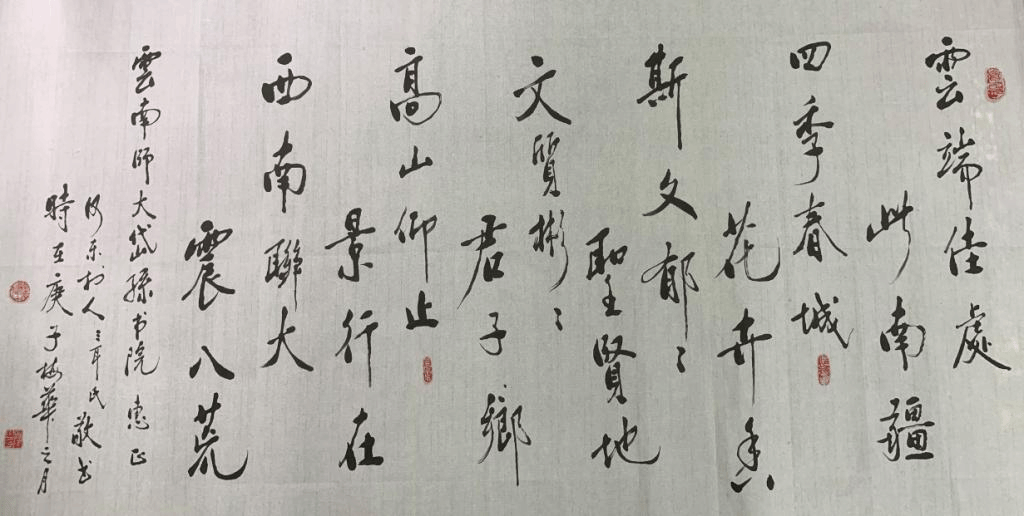 雲端佳處
此南疆
四季春城
花卉香
斯文郁〻
聖賢地
文質彬〻
君子鄉
高山仰止
景行在
西南聯大
震八荒
雲南師大岱孫书院 惠正
河东村人三耳氏敬书
時在庚子梅華之月